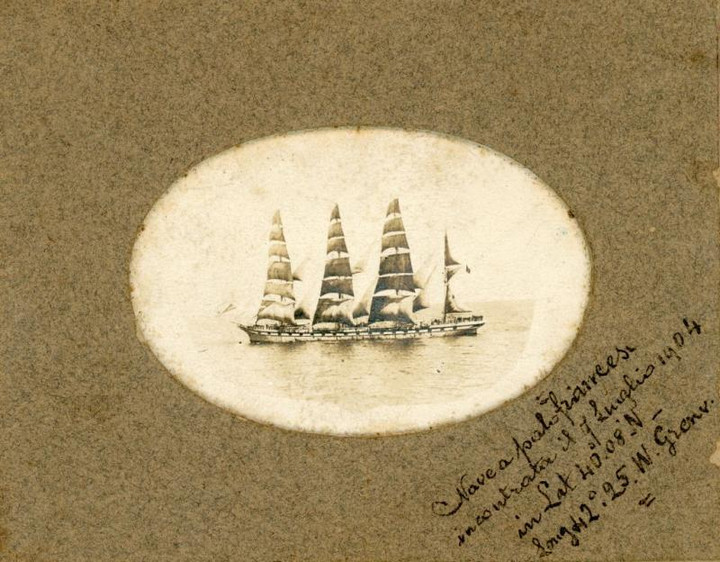 Nave a palo francese
incontrata il 7 Luglio 1904
in Lat 40°.08'.N
Long 42°.25'.W. Grenw.